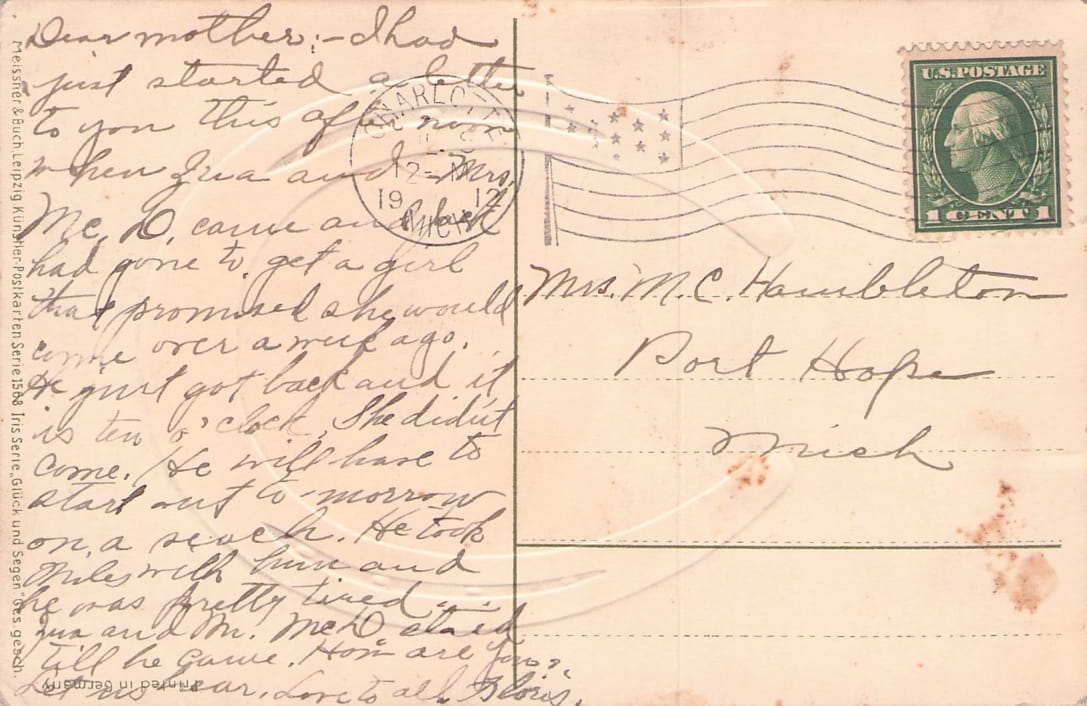 Dear mother:- I had
just started a letter
to you this afternoon
when Iva and Mrs.
Mc. D. came and
had gone to get a girl
that promised she would
come over a week ago.
He just got back and it
is ten o'clock. She didn't
come. He will have to
start out to morrow
on a seach. He took
Miles with him and
he was pretty tired.
Iva and Mr. McD. staid
till he came. How are you?
Let us hear. Love to all
CHARLOTTE
12-M
19 12
MICH
U.S. POSTAGE
1 CENT 1
Mrs. M.C. Hambleton
Port Hope
Mich
Meissner & Buch Leipzig Künstler-Postkarten Serie 1568 Iris Serie „Glück und Segen" Ges. gesch.
Printed in Germany